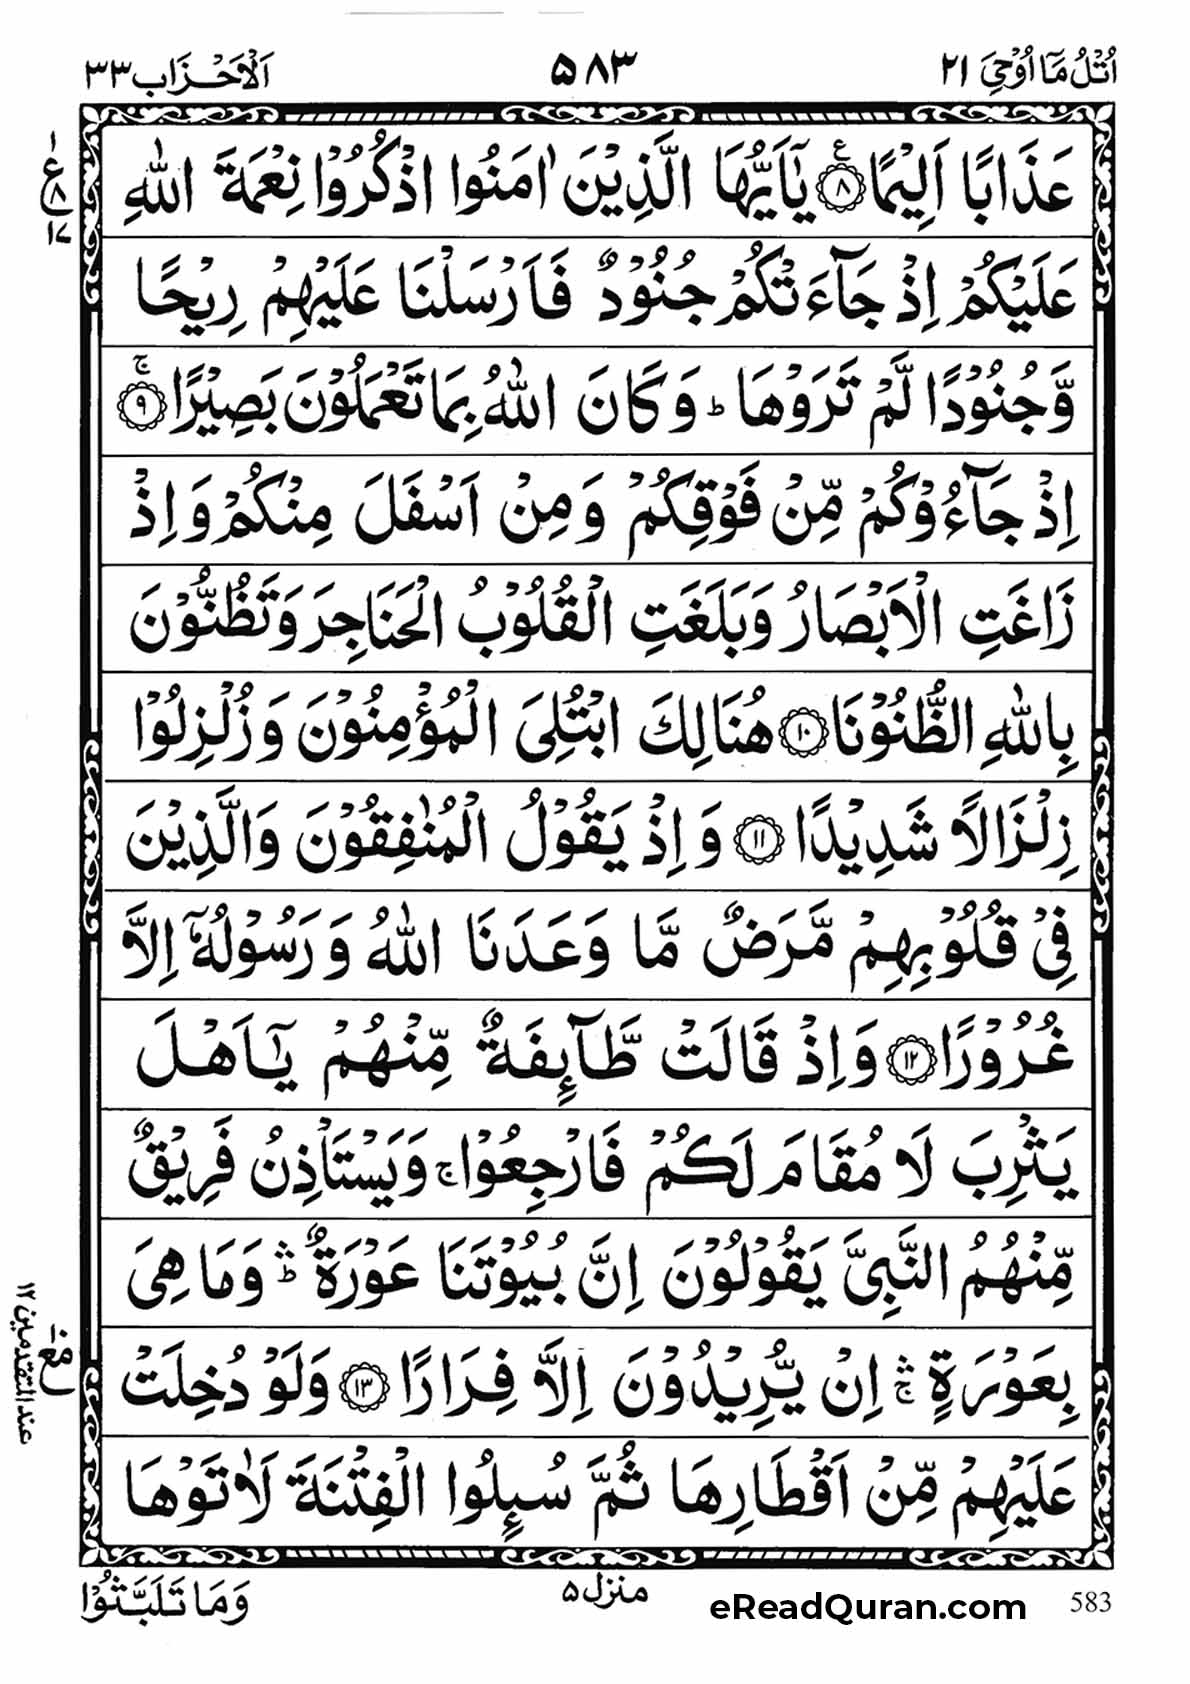 اُتْلُ مَآ اُوْحِيَ ٢١ ۵٨٣ اَلْاَحْزَاب ٣٣
عَذَابًا اَلِيْمًا ﴿٨﴾ ع يٰٓاَيُّهَا الَّذِيْنَ اٰمَنُوا اذْكُرُوْا نِعْمَةَ اللّٰهِ
عَلَيْكُمْ اِذْ جَآءَتْكُمْ جُنُوْدٌ فَاَرْسَلْنَا عَلَيْهِمْ رِيْحًا
وَّجُنُوْدًا لَّمْ تَرَوْهَا ؕ وَكَانَ اللّٰهُ بِمَا تَعْمَلُوْنَ بَصِيْرًا ۚ﴿٩﴾
اِذْ جَآءُوْكُمْ مِّنْ فَوْقِكُمْ وَمِنْ اَسْفَلَ مِنْكُمْ وَاِذْ
زَاغَتِ الْاَبْصَارُ وَبَلَغَتِ الْقُلُوْبُ الْحَنَاجِرَ وَتَظُنُّوْنَ
بِاللّٰهِ الظُّنُوْنَا ﴿١٠﴾ هُنَالِكَ ابْتُلِيَ الْمُؤْمِنُوْنَ وَزُلْزِلُوْا
زِلْزَالًا شَدِيْدًا ﴿١١﴾ وَاِذْ يَقُوْلُ الْمُنٰفِقُوْنَ وَالَّذِيْنَ
فِيْ قُلُوْبِهِمْ مَّرَضٌ مَّا وَعَدَنَا اللّٰهُ وَرَسُوْلُهٗٓ اِلَّا
غُرُوْرًا ﴿١٢﴾ وَاِذْ قَالَتْ طَّآئِفَةٌ مِّنْهُمْ يٰٓاَهْلَ
يَثْرِبَ لَا مُقَامَ لَكُمْ فَارْجِعُوْا ۚ وَيَسْتَاْذِنُ فَرِيْقٌ
مِّنْهُمُ النَّبِيَّ يَقُوْلُوْنَ اِنَّ بُيُوْتَنَا عَوْرَةٌ ۛؕ وَمَا هِيَ
بِعَوْرَةٍ ۛۚ اِنْ يُّرِيْدُوْنَ اِلَّا فِرَارًا ﴿١٣﴾ وَلَوْ دُخِلَتْ
عَلَيْهِمْ مِّنْ اَقْطَارِهَا ثُمَّ سُئِلُوا الْفِتْنَةَ لَاٰتَوْهَا
وَمَا تَلَبَّثُوْا
منزل ۵
eReadQuran.com
583
ع ١ ٨ ١٧
مع عند المتقدمين ١٢